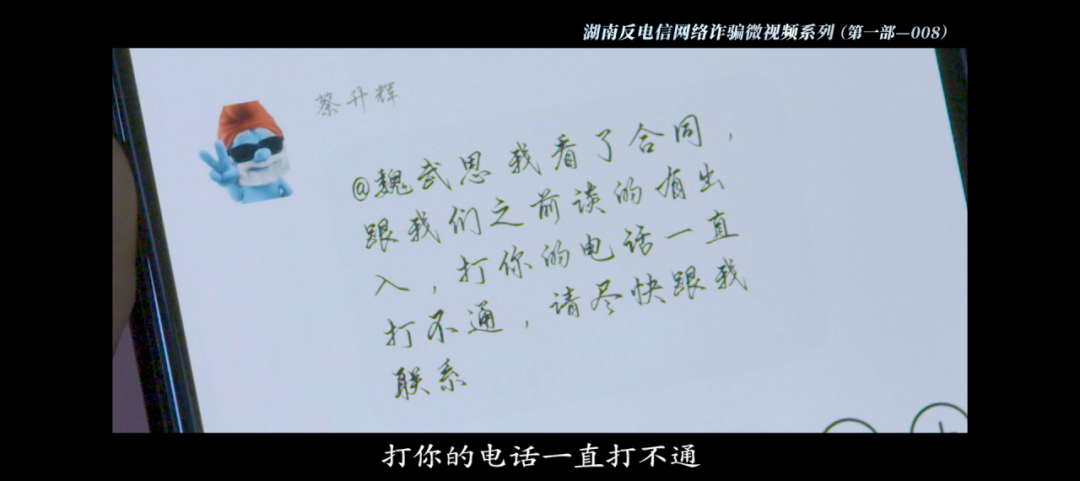 湖南反电信网络诈骗微视频系列（第一部—008）
蔡升辉
@魏武思我看了合同，
跟我们之前谈的有出
入，打你的电话一直
打不通，请尽快跟我
联系
打你的电话一直打不通